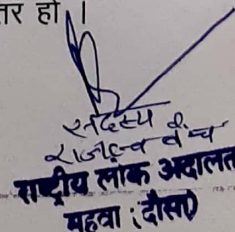 तर हो ।
सदस्य
राजस्व बैंच
राष्ट्रीय लोक अदालत
महवा (दौसा)